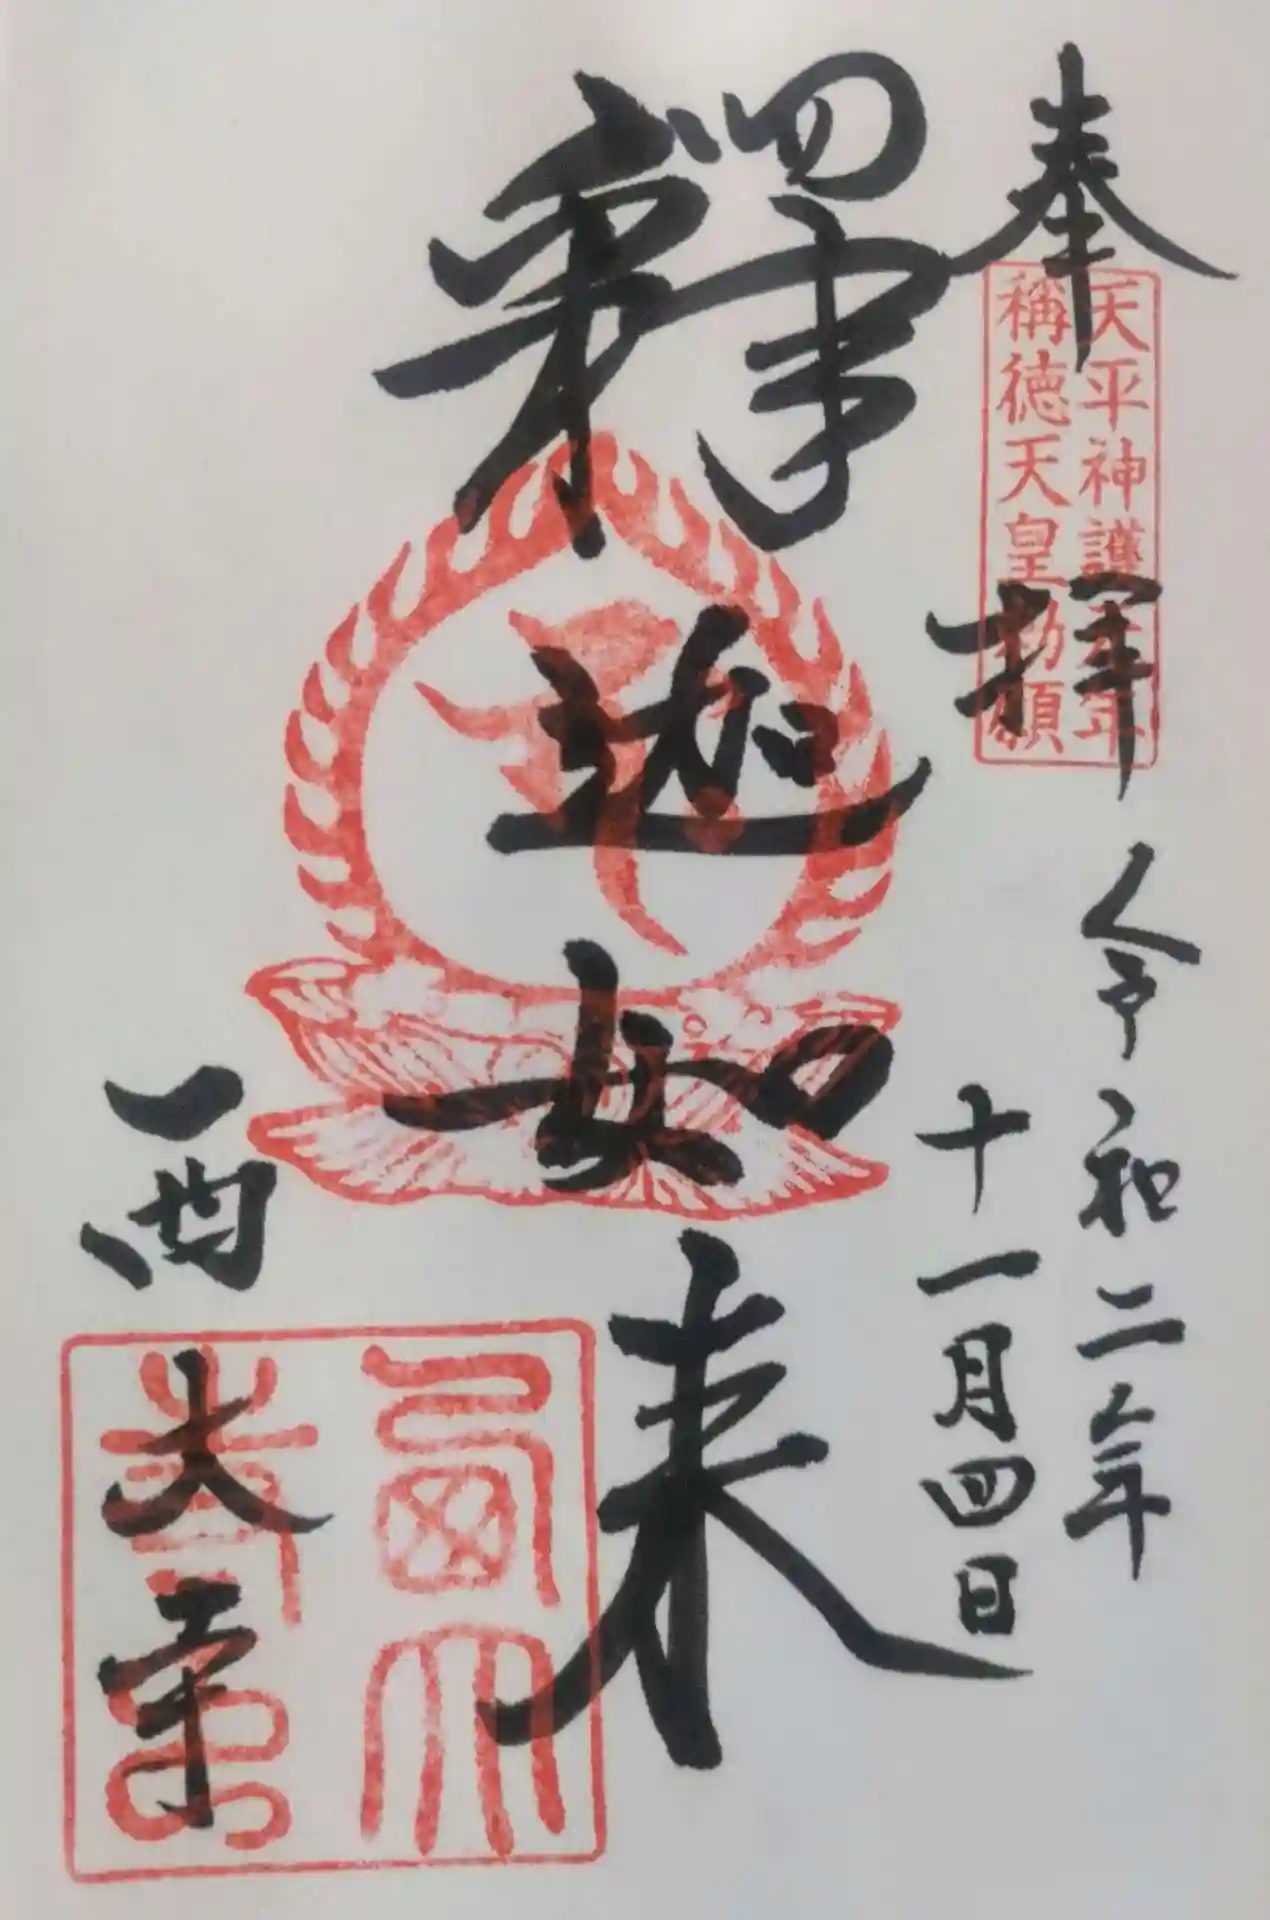 奉拝
天平神護元年
稱徳天皇勅願
令和二年
十一月四日
釋迦如来
西大寺
西大
寺印